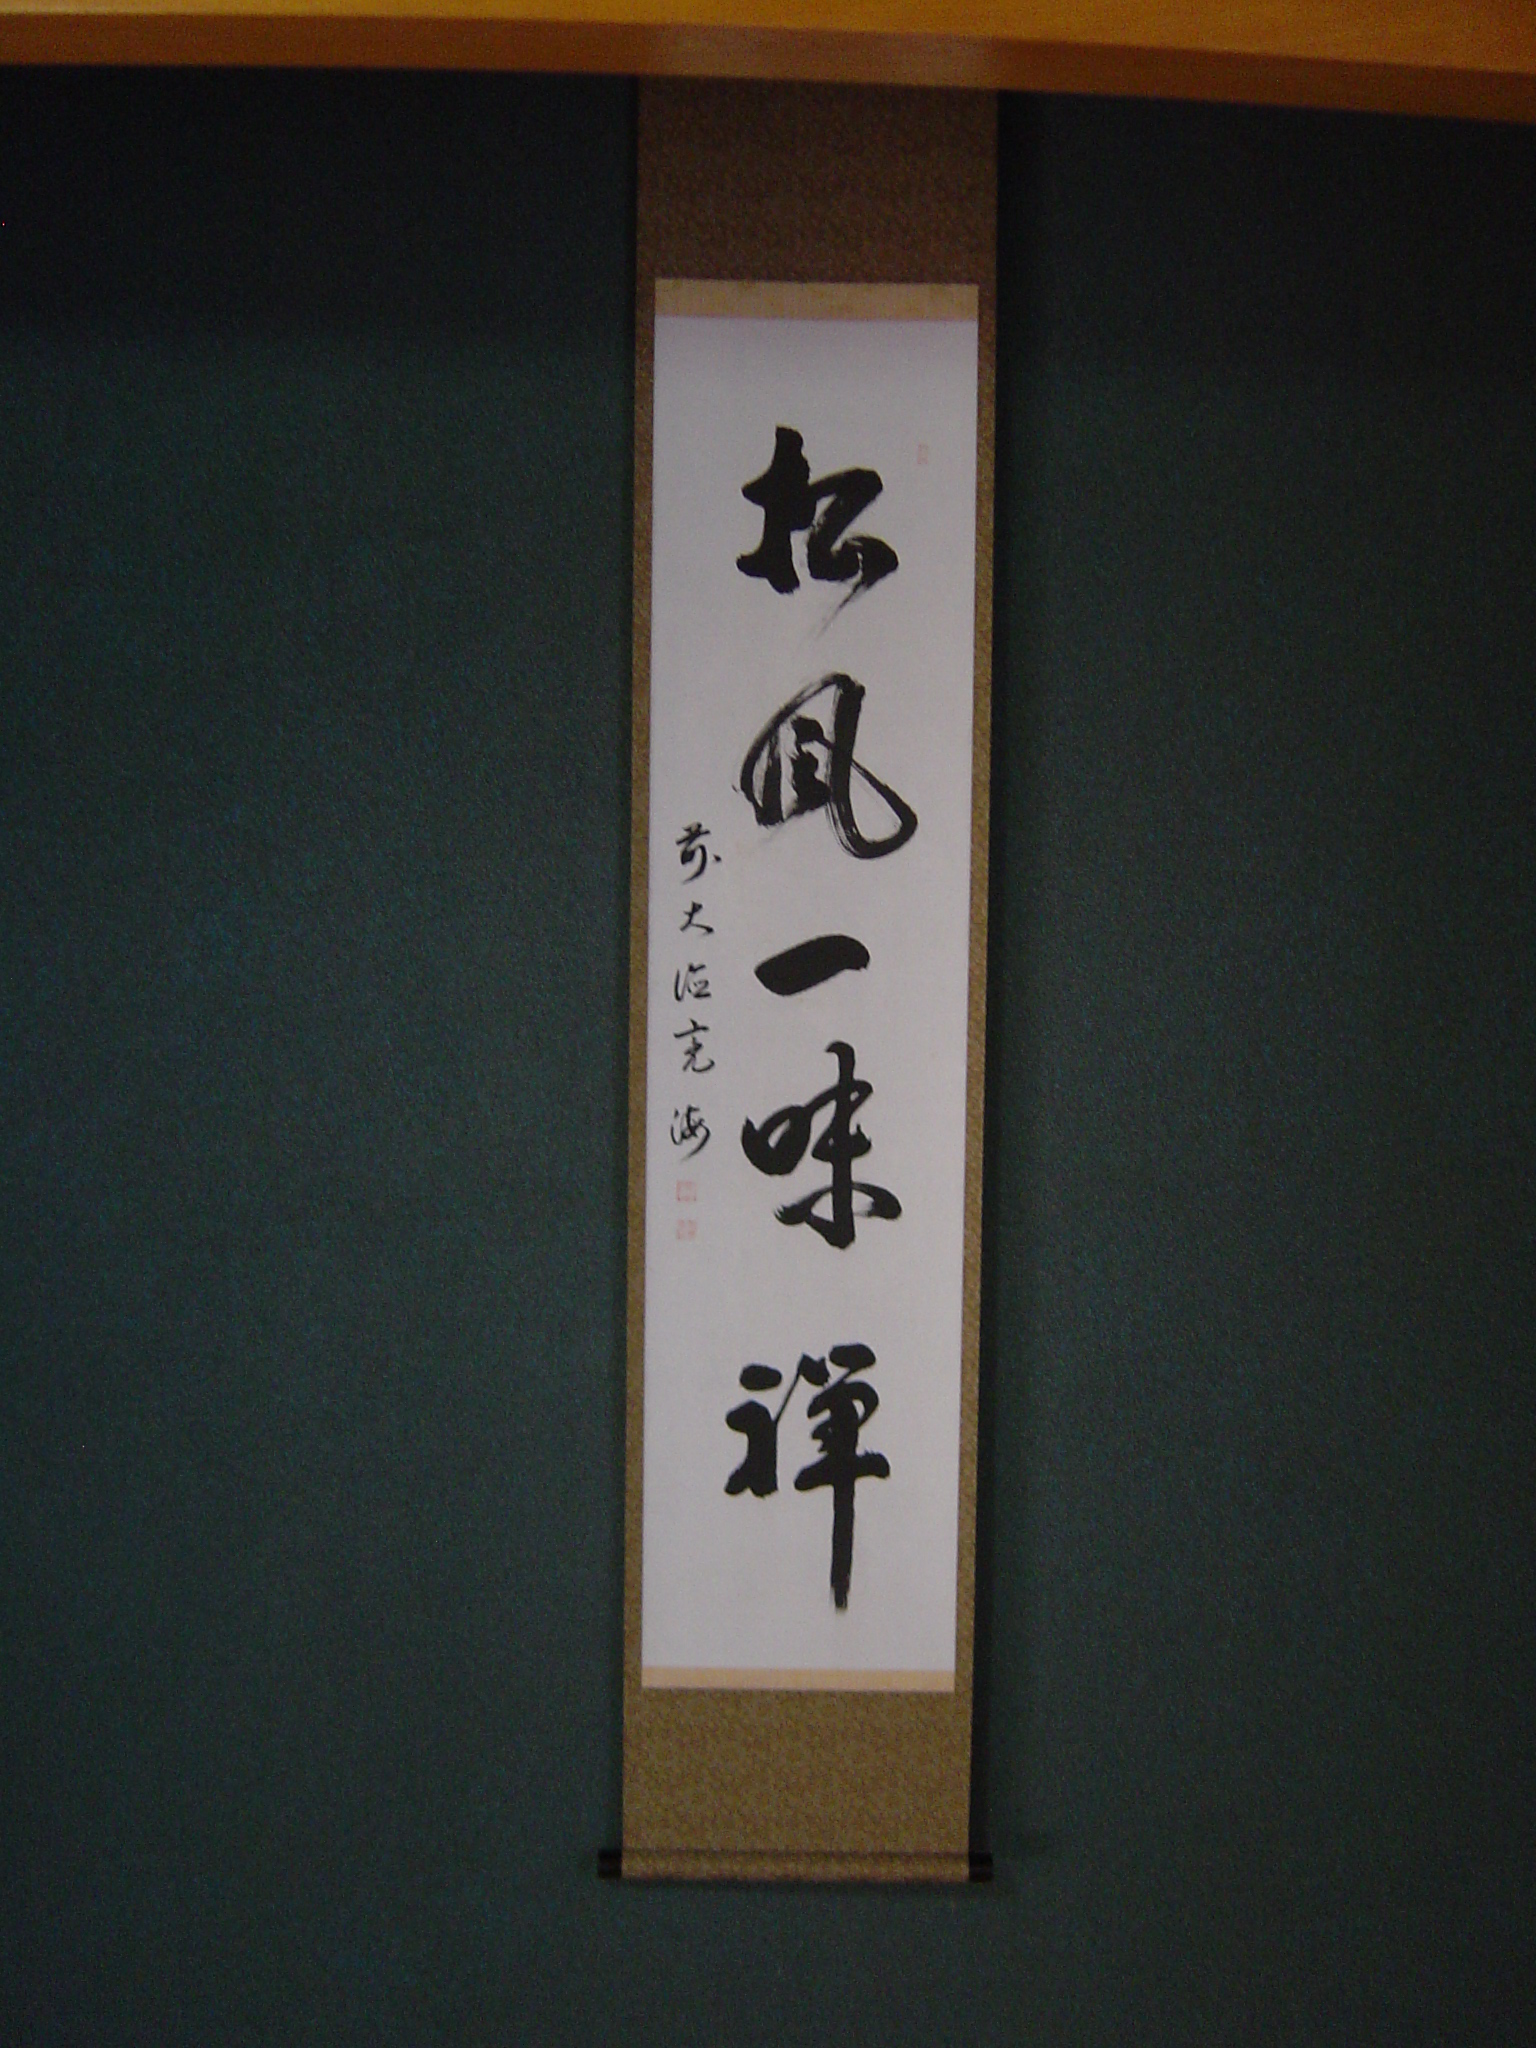 松風一味禅
前大徳亮海